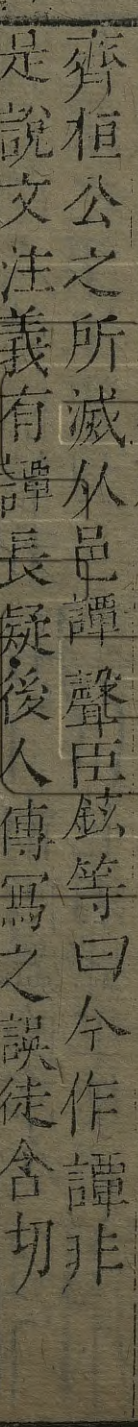 齊桓公之所滅从邑譚聲臣鉉等曰今作譚非
是說文注義有譚長疑後人傳寫之誤徒含切